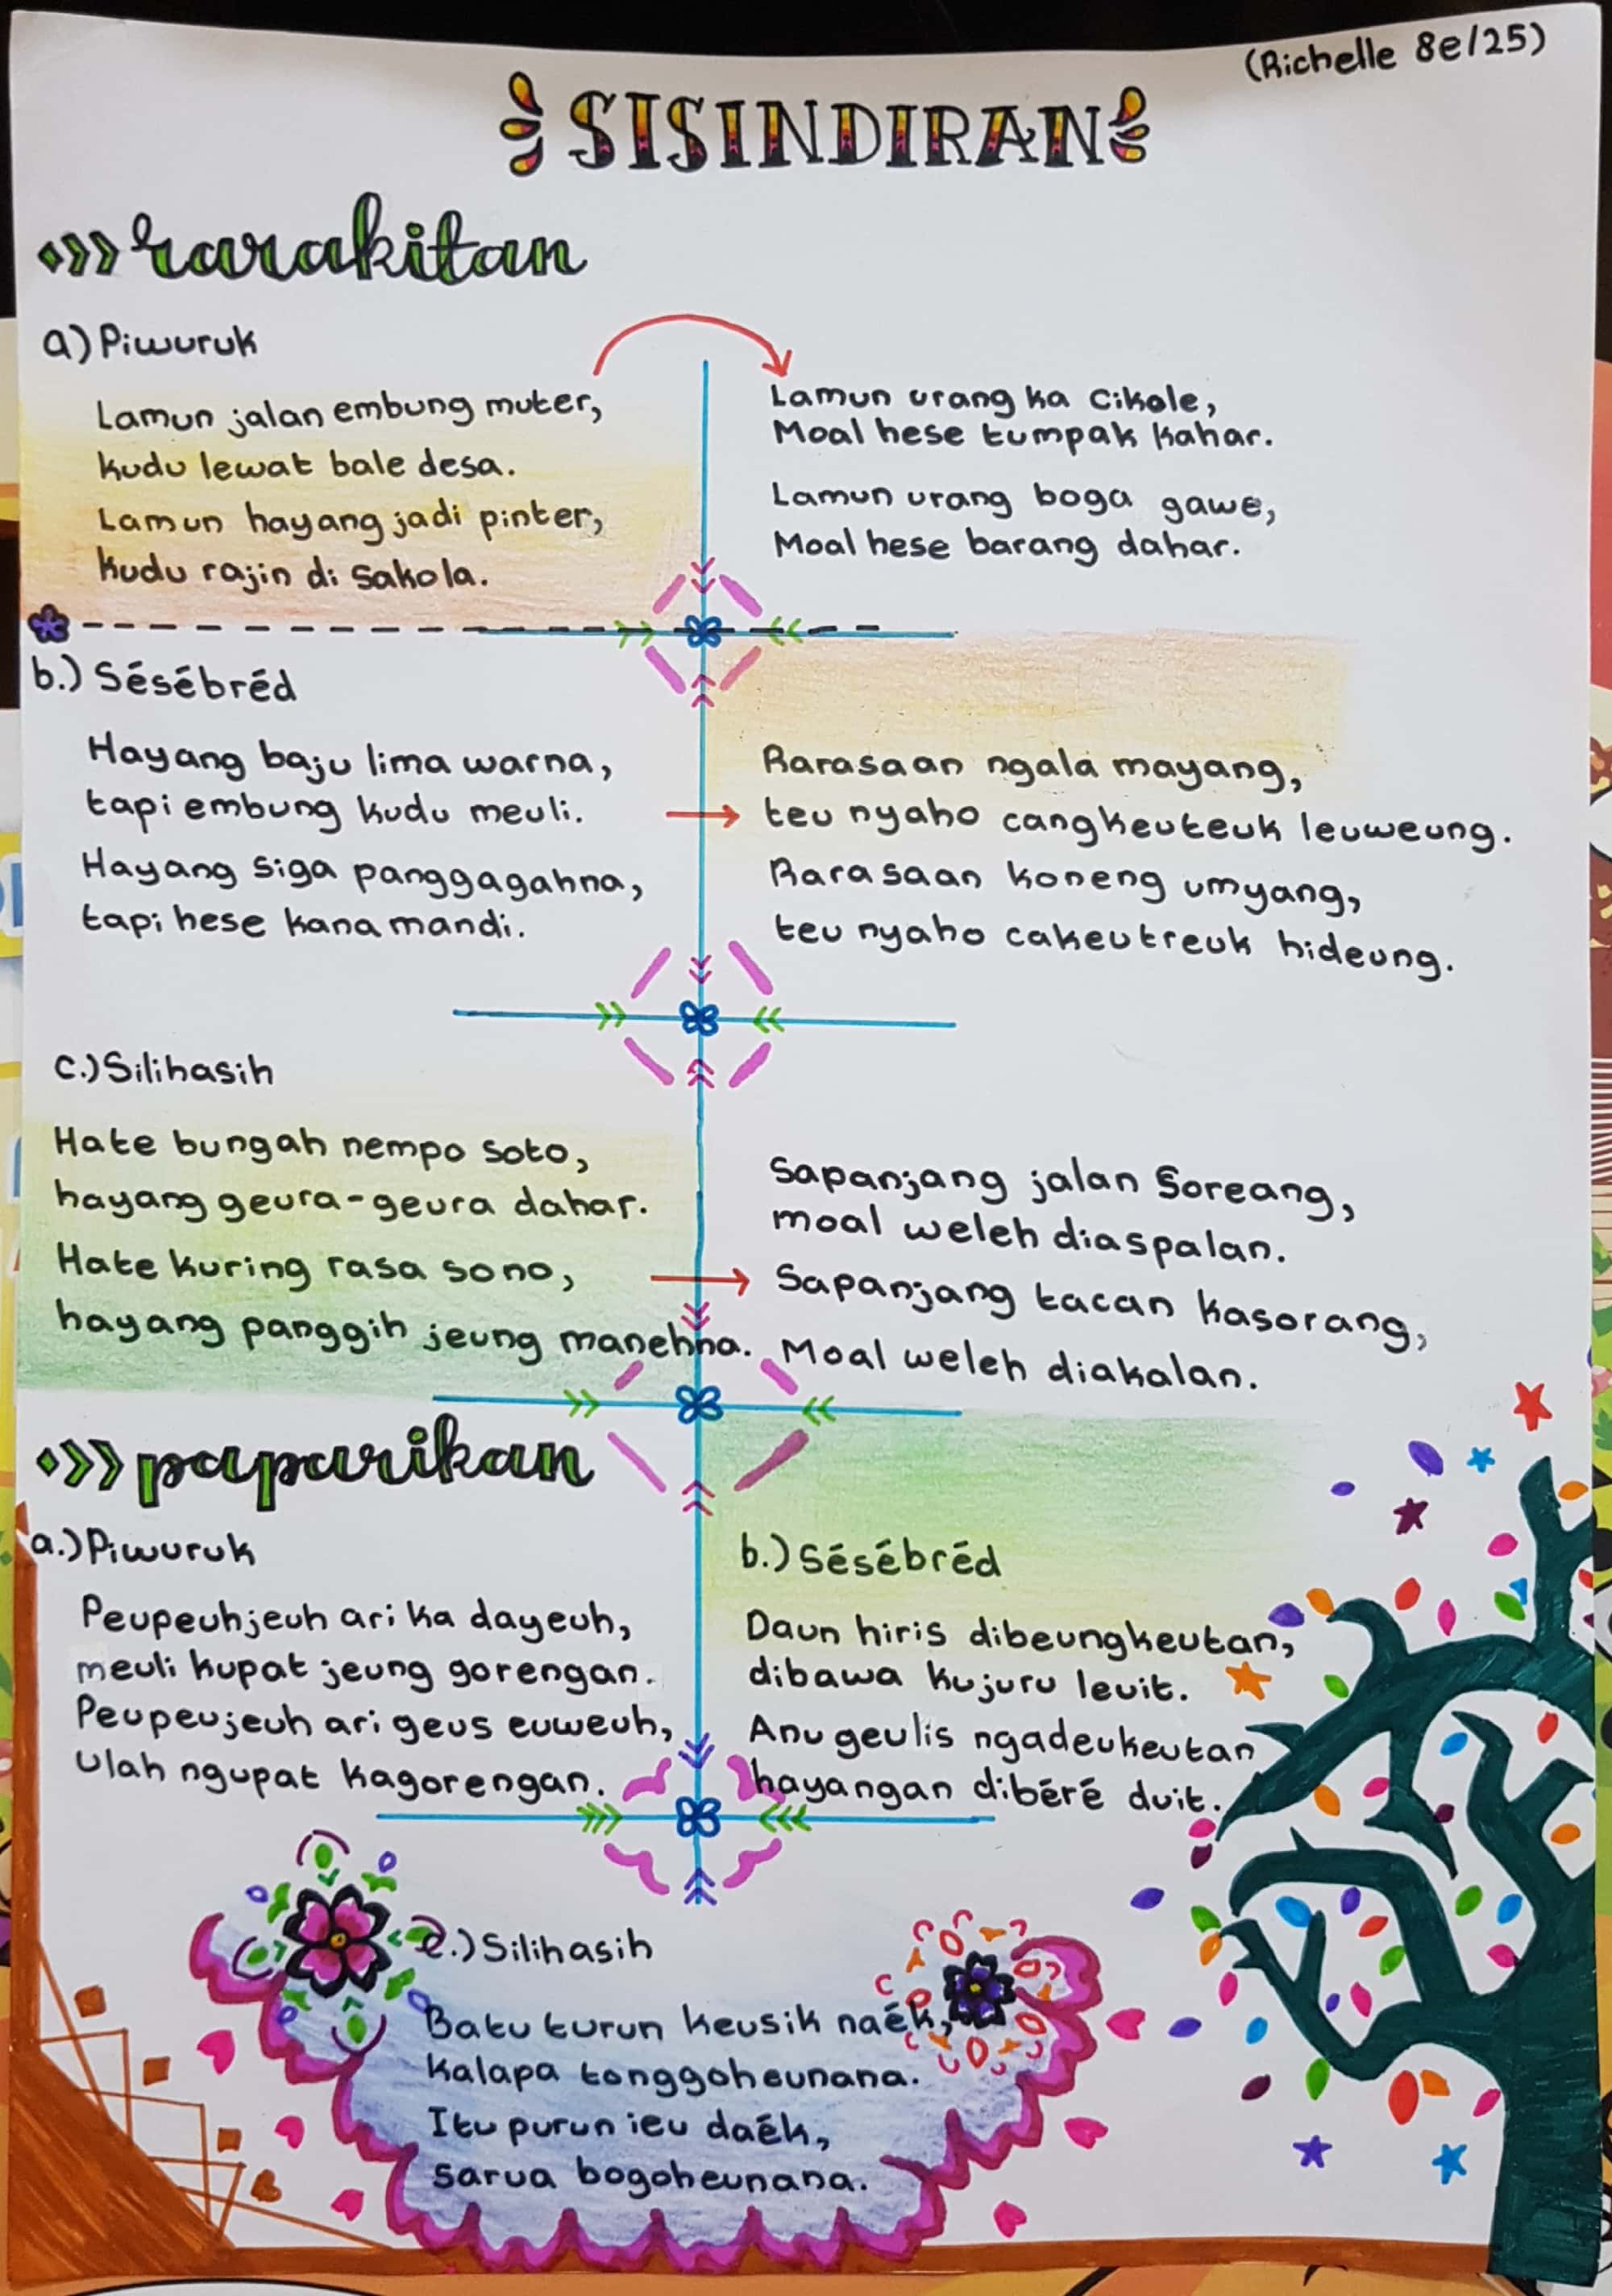 (Richelle 8e/25)
SISINDIRAN
rarakitan
a) Piwuruk
Lamun jalan embung muter,
kudu lewat bale desa.
Lamun hayang jadi pinter,
kudu rajin di sakola.
Lamun urang ka Cikole,
Moal hese tumpak kahar.
Lamun urang boga gawe,
Moal hese barang dahar.
b.) Sésébréd
Hayang baju lima warna,
tapi embung kudu meuli.
Hayang siga panggagahna,
tapi hese kana mandi.
Rarasaan ngala mayang,
teu nyaho cangkeuteuk leuweung.
Rarasaan koneng umyang,
teu nyaho cakeutreuk hideung.
c.) Silihasih
Hate bungah nempo soto,
hayang geura-geura dahar.
Hate kuring rasa sono,
hayang panggih jeung manehna.
Sapanjang jalan Soreang,
moal weleh diaspalan.
Sapanjang tacan kasorang,
Moal weleh diakalan.
paparikan
a.) Piwuruk
Peupeuhjeuh ari ka dayeuh,
meuli kupat jeung gorengan.
Peupeujeuh ari geus euweuh,
Ulah ngupat kagorengan.
b.) Sésébréd
Daun hiris dibeungkeutan,
dibawa kujuru leuit.
Anu geulis ngadeukeutan
hayangan dibéré duit.
c.) Silihasih
Batu turun keusik naék,
Kalapa tonggoheunana.
Itu purun ieu daék,
sarua bogoheunana.